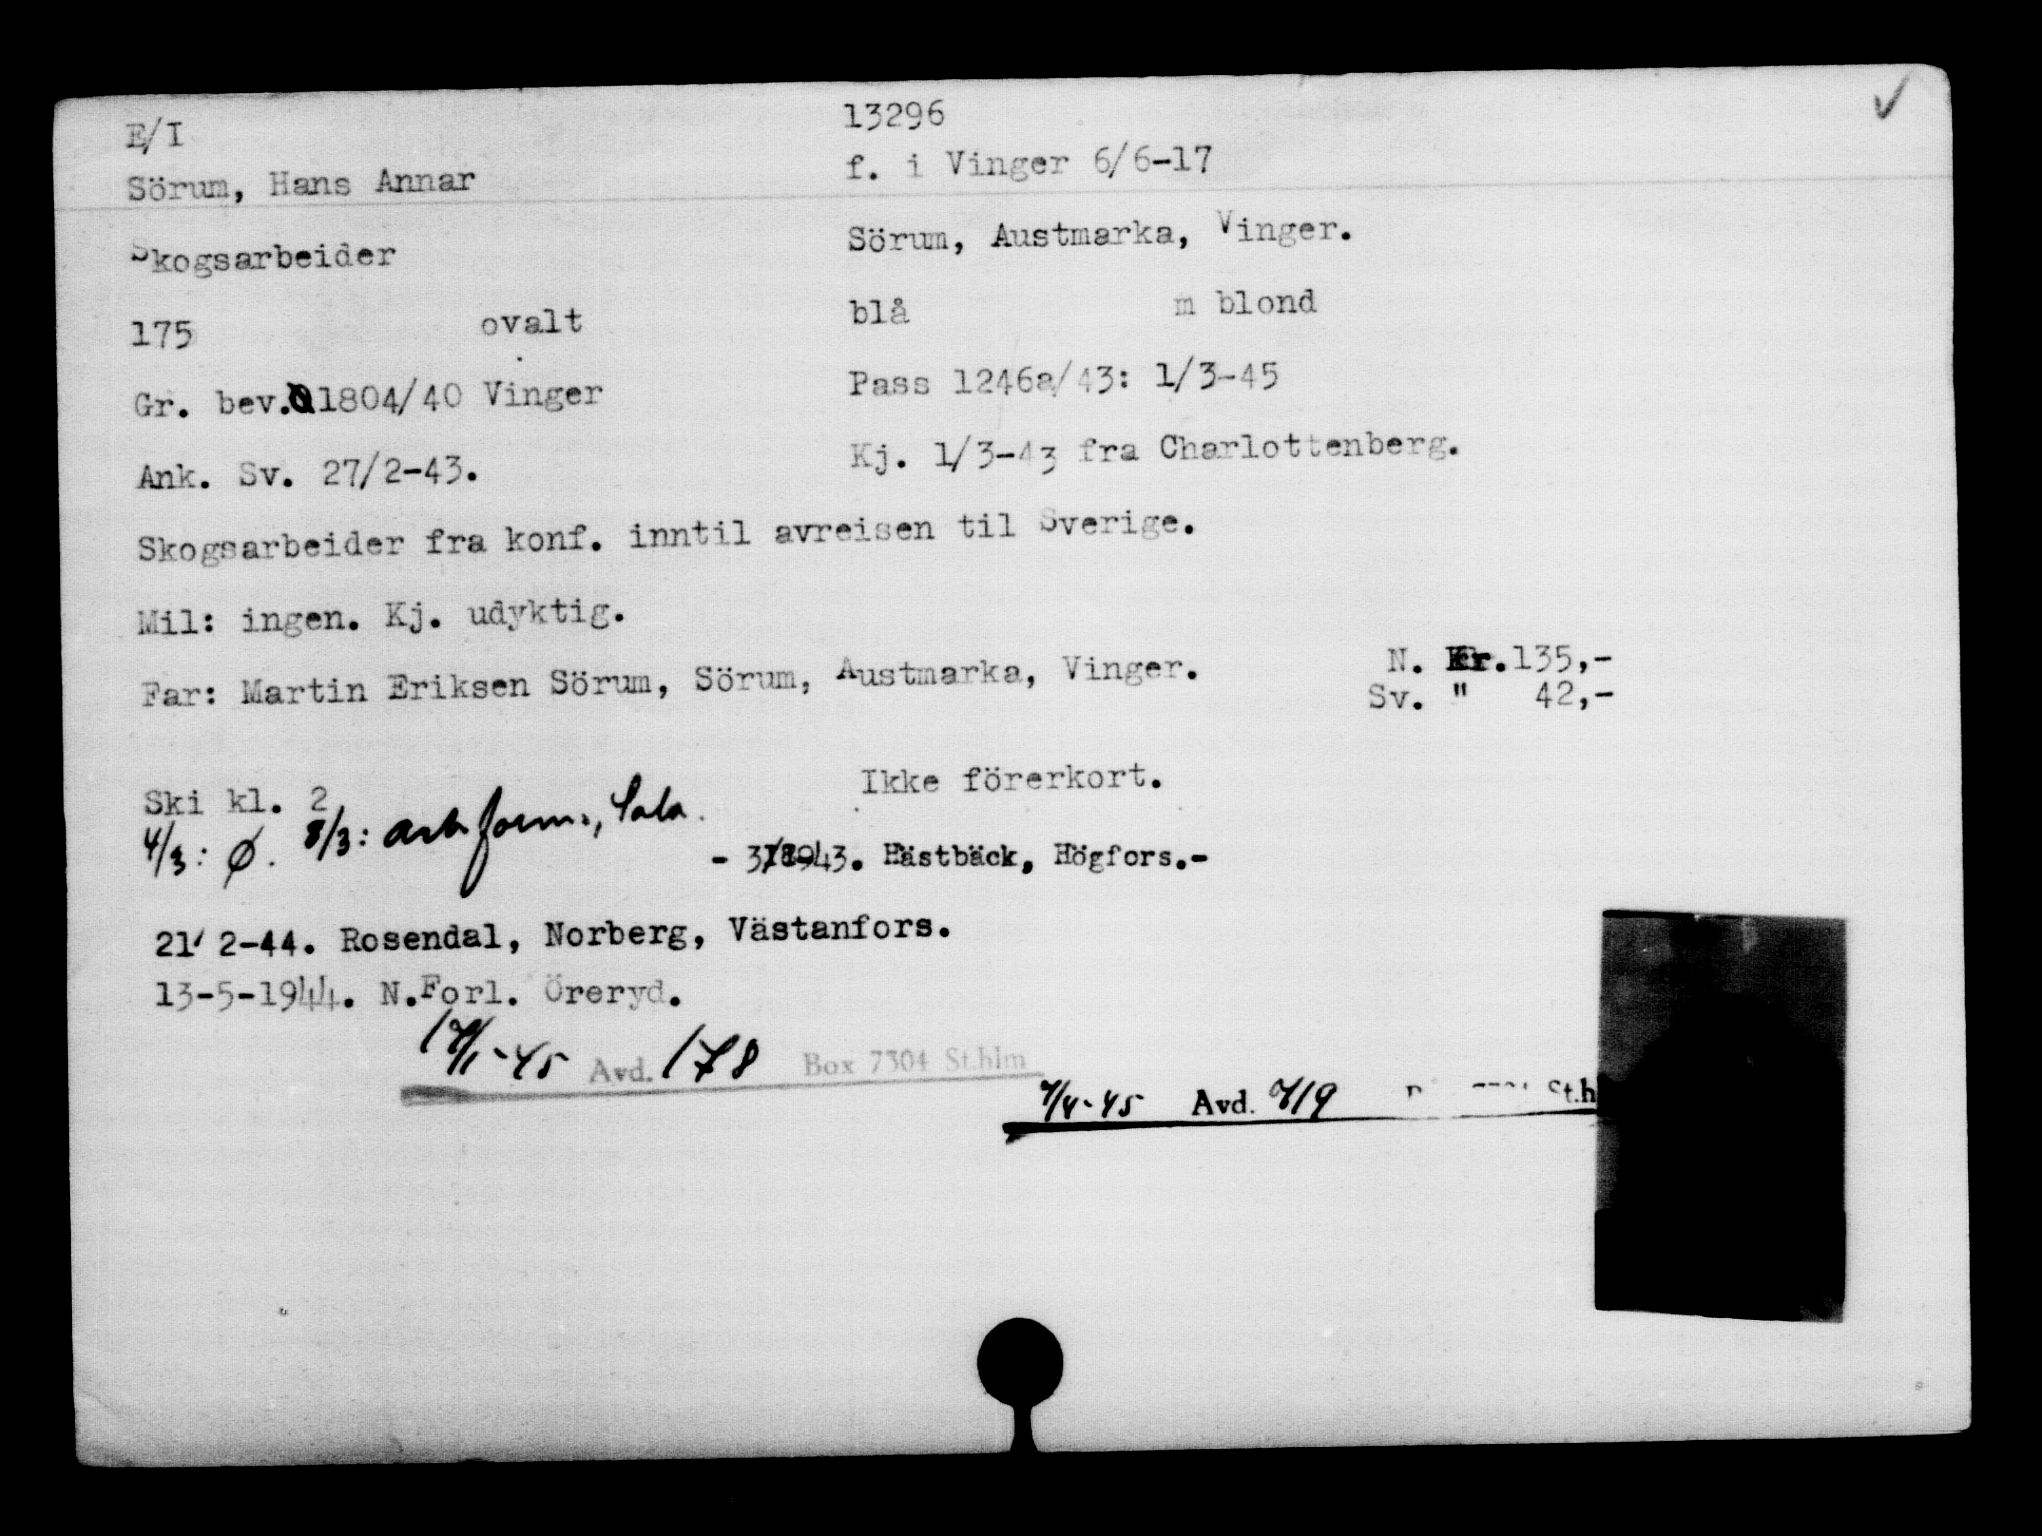 E/I 13296
Sörum, Hans Annar f. i Vinger 6/6-17
Skogsarbeider Sörum, Austmarka, Vinger.
175 ovalt blå m blond
Gr. bev. 1804/40 Vinger Pass 1246a/43: 1/3-45
Ank. Sv. 27/2-43. Kj. 1/3-43 fra Charlottenberg.
Skogsarbeider fra konf. inntil avreisen til Sverige.
Mil: ingen. Kj. udyktig.
Far: Martin Eriksen Sörum, Sörum, Austmarka, Vinger. N. Kr.135,-
Sv. " 42,-
Ski kl. 2 Ikke förerkort.
4/3: Ø. 8/3: arb. form., Sala.
- Hästbäck, Högfors.-
21/ 2-44. Rosendal, Norberg, Västanfors.
13-5-1944. N.Forl. Öreryd.
-45 Avd. 178 Box 7304 St.hlm
7/4-45 Avd. 719 St.h